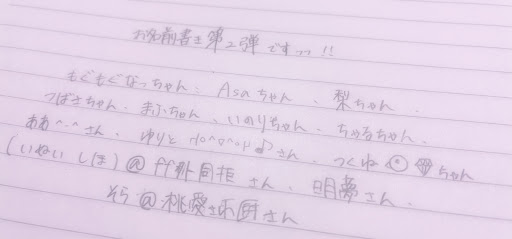 お名前書き第2弾ですっっ!!
もぐもぐなっちゃん、Asaちゃん、梨ちゃん、
つばさちゃん、まふちゃん、いのりちゃん、ちゅるちゃん、
ああ^-^さん、ゆりと さん、つくゆ ちゃん
(いねい しほ)@ff外同拒さん、明夢さん、
そら@桃愛 さん